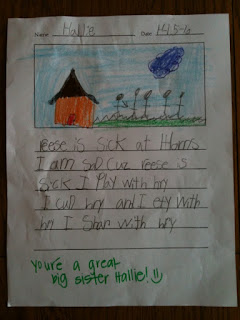 Name: Hallie Date 14.5-6
reese is sick at Home
I am saD cuz reese is
sick I Play with hry
I cuD hry and I ery with
hry I Shar with hry
you're a great
big sister Hallie!